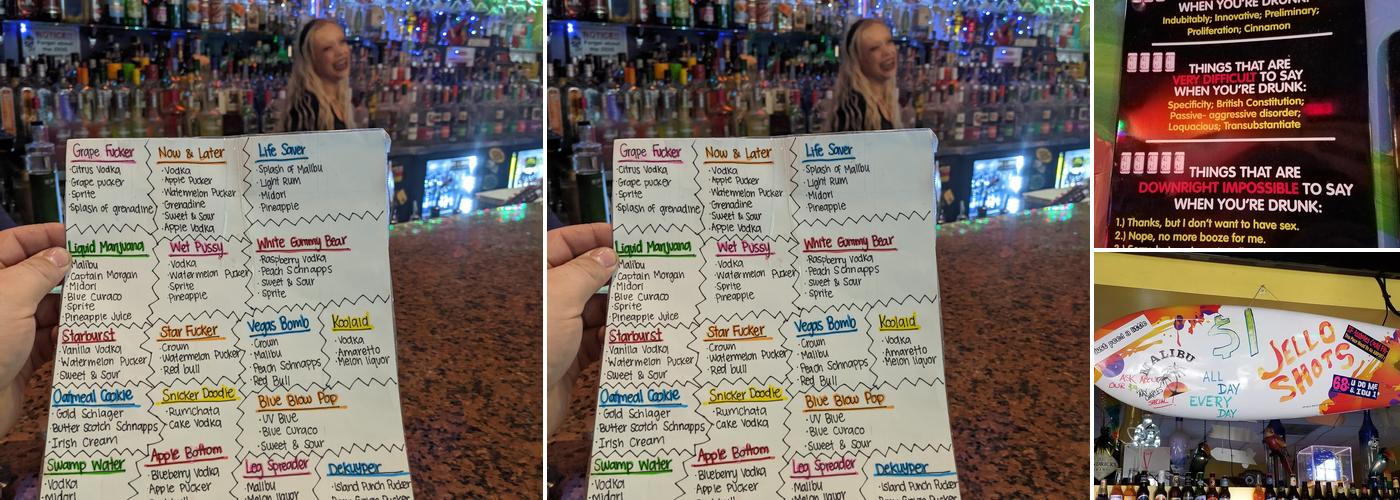 NOTICE!
Grape Fucker
·Citrus Vodka
·Grape pucker
·Sprite
·Splash of grenadine
Now & Later
·Vodka
·Apple Pucker
·Watermelon Pucker
·Grenadine
·Sweet & Sour
·Apple Vodka
Life Saver
·Splash of Malibu
·Light Rum
·Midori
·Pineapple
Liquid Marijuana
·Malibu
·Captain Morgan
·Midori
·Blue Curaco
·Sprite
·Pineapple Juice
Wet Pussy
·Vodka
·Watermelon Pucker
·Sprite
·Pineapple
White Gummy Bear
·Raspberry Vodka
·Peach Schnapps
·Sweet & Sour
·Sprite
Starburst
·Vanilla Vodka
·Watermelon Pucker
·Sweet & Sour
Star Fucker
·Crown
·Watermelon Pucker
·Red bull
Vegas Bomb
·Crown
·Malibu
·Peach Schnapps
·Red Bull
Koolaid
·Vodka
·Amaretto
·Melon liquor
Oatmeal Cookie
·Gold Schlager
·Butter scotch Schnapps
·Irish Cream
Snicker Doodle
·Rumchata
·Cake Vodka
Blue Blow Pop
·UV Blue
·Blue Curaco
·Sweet & Sour
Swamp Water
·Vodka
·Midori
Apple Bottom
·Blueberry Vodka
·Apple Pucker
Leg Spreader
·Malibu
·Melon liquor
Dekuyper
·Island Punch Pucker
NOTICE!
Grape Fucker
·Citrus Vodka
·Grape pucker
·Sprite
·Splash of grenadine
Now & Later
·Vodka
·Apple Pucker
·Watermelon Pucker
·Grenadine
·Sweet & Sour
·Apple Vodka
Life Saver
·Splash of Malibu
·Light Rum
·Midori
·Pineapple
Liquid Marijuana
·Malibu
·Captain Morgan
·Midori
·Blue Curaco
·Sprite
·Pineapple Juice
Wet Pussy
·Vodka
·Watermelon Pucker
·Sprite
·Pineapple
White Gummy Bear
·Raspberry Vodka
·Peach Schnapps
·Sweet & Sour
·Sprite
Starburst
·Vanilla Vodka
·Watermelon Pucker
·Sweet & Sour
Star Fucker
·Crown
·Watermelon Pucker
·Red bull
Vegas Bomb
·Crown
·Malibu
·Peach Schnapps
·Red Bull
Koolaid
·Vodka
·Amaretto
·Melon liquor
Oatmeal Cookie
·Gold Schlager
·Butter scotch Schnapps
·Irish Cream
Snicker Doodle
·Rumchata
·Cake Vodka
Blue Blow Pop
·UV Blue
·Blue Curaco
·Sweet & Sour
Swamp Water
·Vodka
·Midori
Apple Bottom
·Blueberry Vodka
·Apple Pucker
Leg Spreader
·Malibu
·Melon liquor
Dekuyper
·Island Punch Pucker
WHEN YOU'RE DRUNK:
Indubitably; Innovative; Preliminary;
Proliferation; Cinnamon
THINGS THAT ARE
VERY DIFFICULT TO SAY
WHEN YOU'RE DRUNK:
Specificity; British Constitution;
Passive- aggressive disorder;
Loquacious; Transubstantiate
THINGS THAT ARE
DOWNRIGHT IMPOSSIBLE TO SAY
WHEN YOU'RE DRUNK:
1.) Thanks, but I don't want to have sex.
2.) Nope, no more booze for me.
$1
JELLO
SHOTS
MALIBU
ASK ABOUT
OUR
ALL
DAY
EVERY
DAY
68: U DO ME
& I OU 1